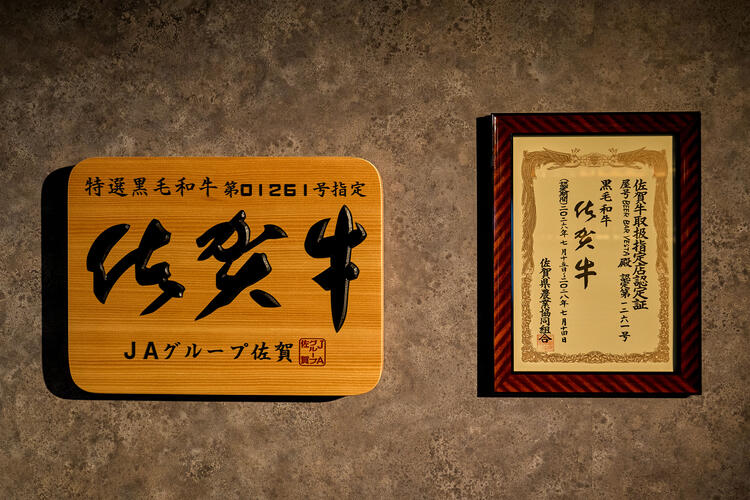 特選黒毛和牛 第01261号指定
佐賀牛
JAグループ佐賀
JA
グループ
佐賀
佐賀牛取扱指定店認定証
屋号 BEER BAR VESTA 殿 認定第一二六一号
黒毛和牛
佐賀牛
(認定期間)二〇二六年 七月十五日~二〇二八年 七月十四日
佐賀県農業協同組合